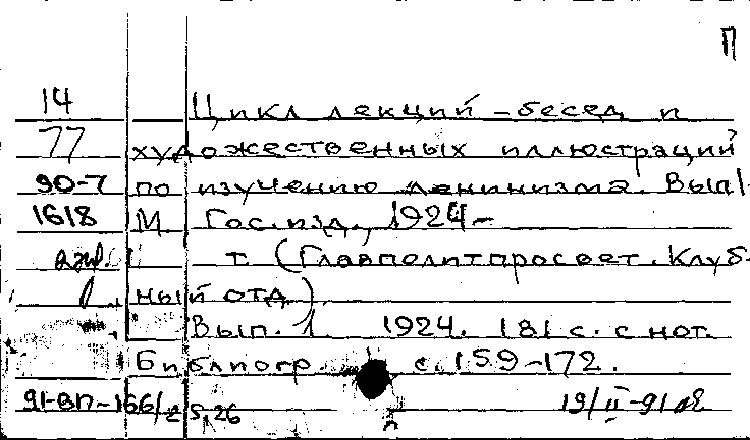 П
14 Цикл лекций-бесед и
77 художественных иллюстраций
90-7 по изучению ленинизма. Вып 1-
1618 М. Гос. изд., 1924-
т. (Главполитпросвет. Клуб-
ный отд).
Вып. 1. 1924. 181 с. с нот.
Библиогр. с. 159-172.
91-ВП-166/2 5,26 19/II-91